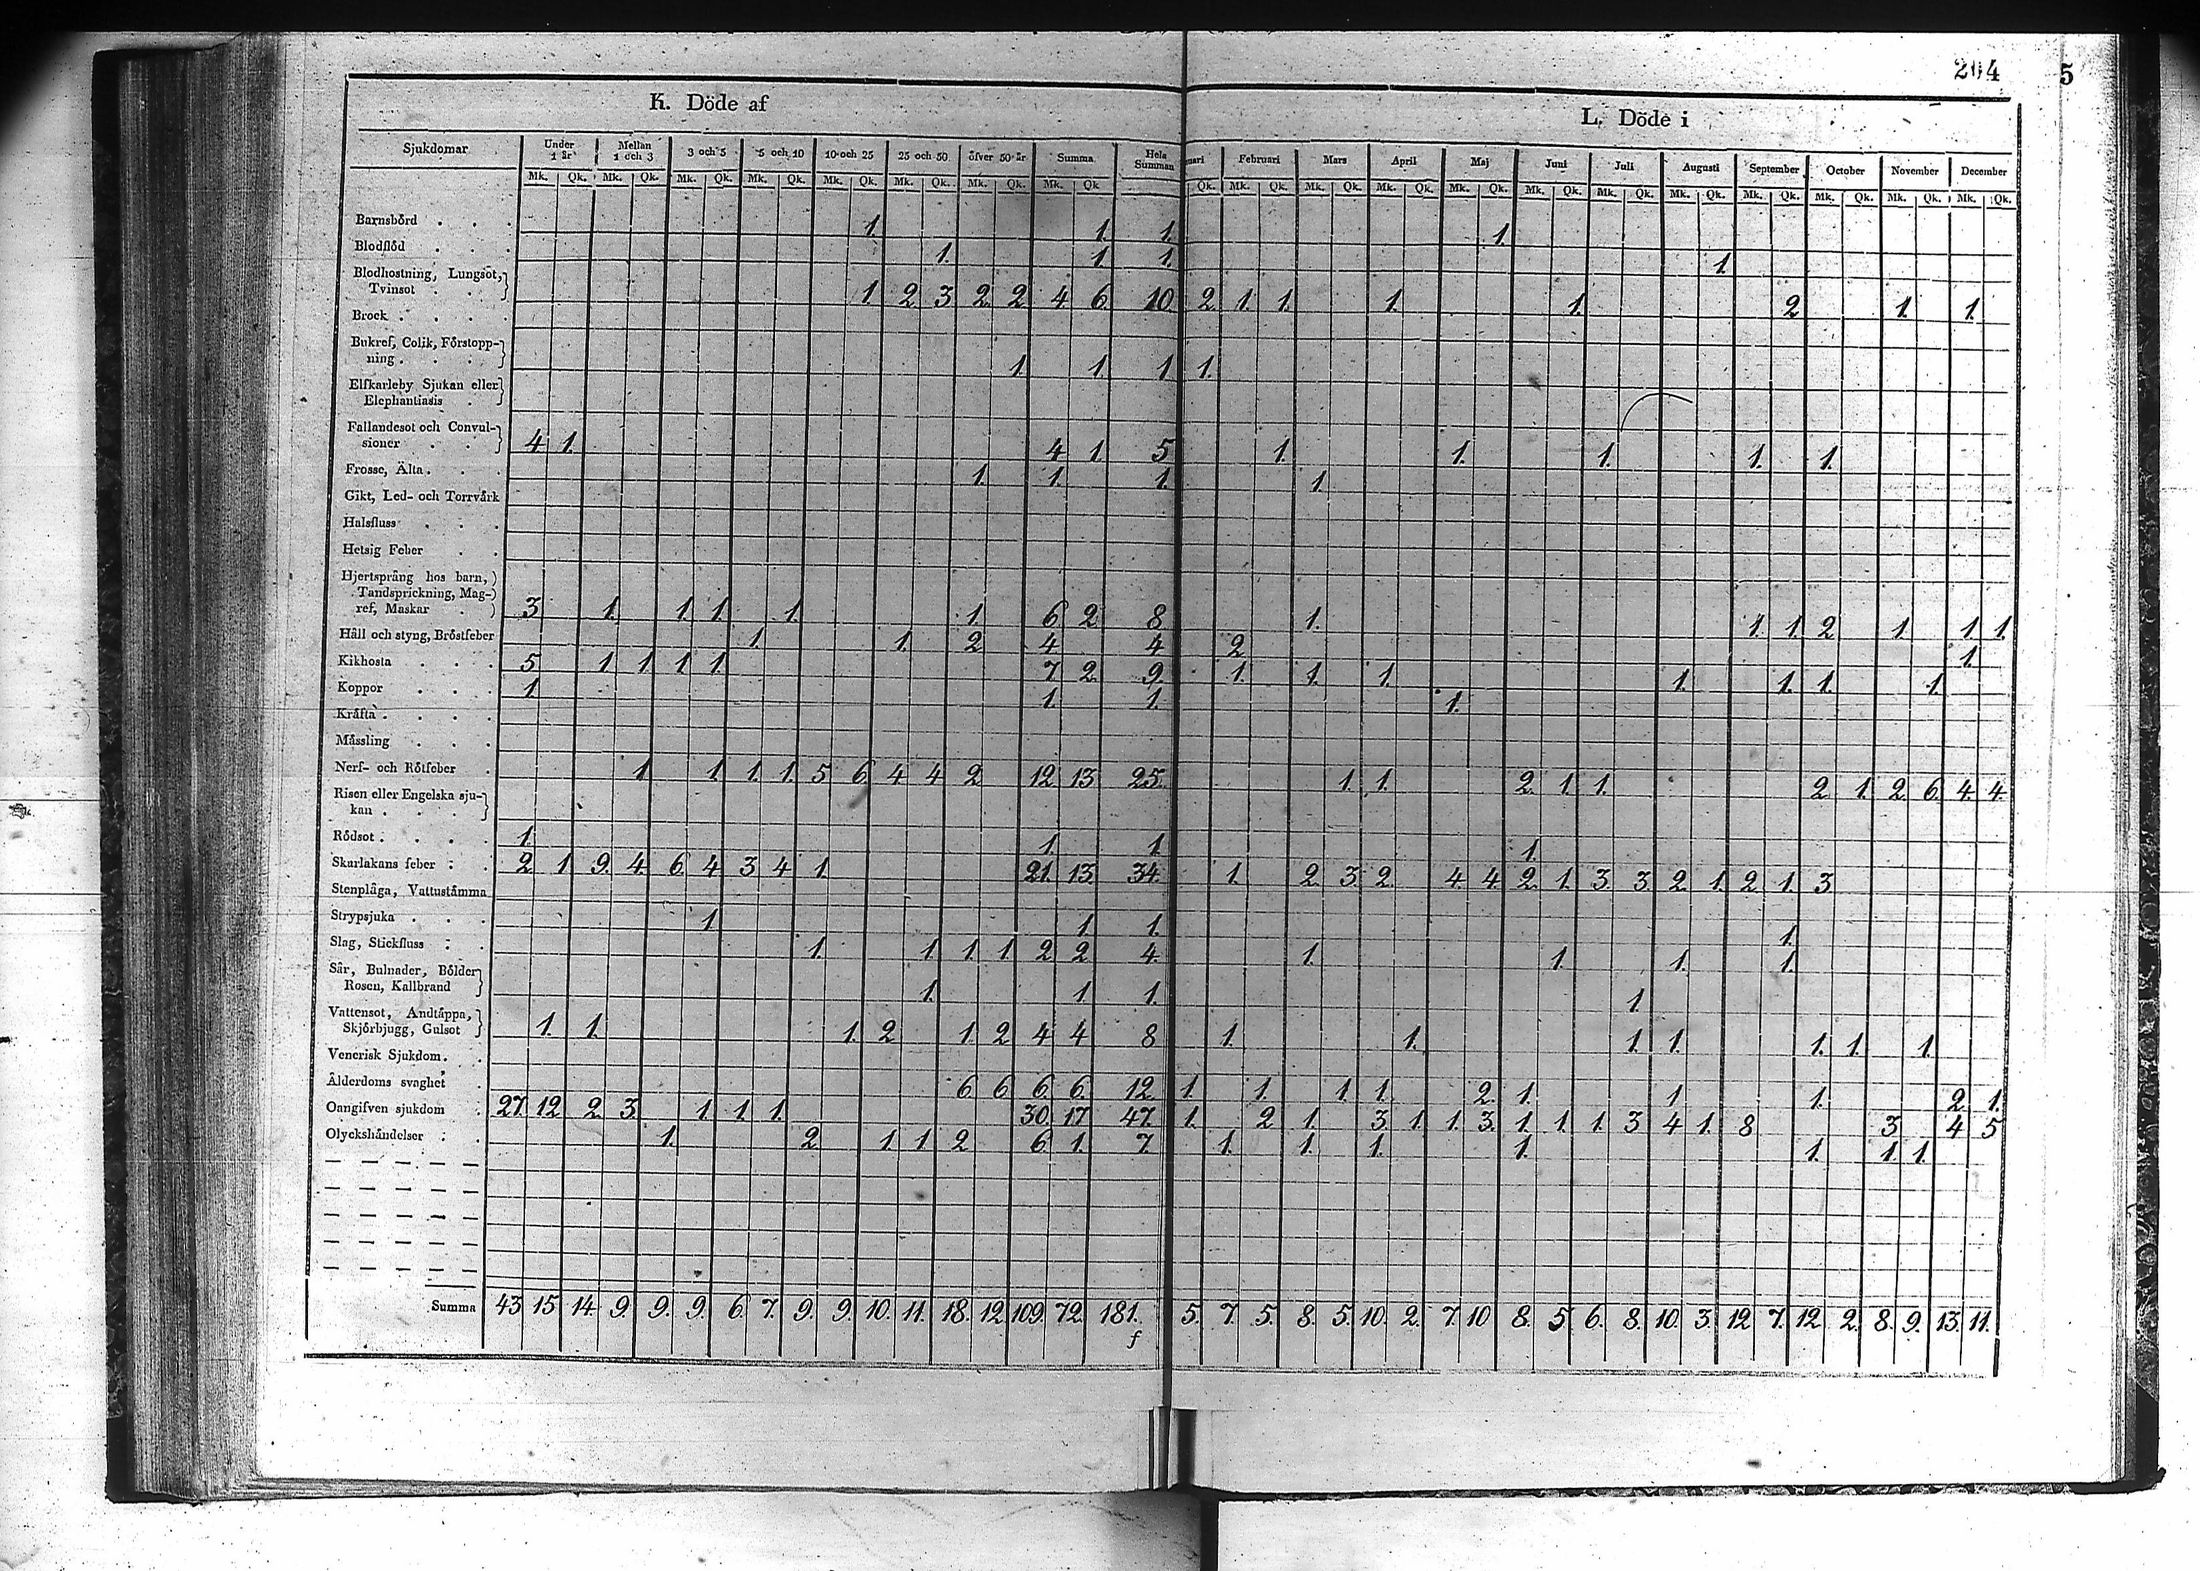 204 5
K. Döde af L. Döde i
Sjukdomar Under 1 år Mellan 1 och 3 3 och 5 5 och 10 10 och 25 25 och 50 öfver 50 år Summa Hela Summan nuari Februari Mars April Maj Juni Juli Augusti September October November December
Mk. Qk. Mk. Qk. Mk. Qk. Mk. Qk. Mk. Qk. Mk. Qk. Mk. Qk. Mk. Qk Qk. Mk. Qk. Mk. Qk. Mk. Qk. Mk. Qk. Mk. Qk. Mk. Qk. Mk. Qk. Mk. Qk. Mk. Qk. Mk. Qk. Mk. Qk.
Barnsbörd . . . 1. 1. 1. 1.
Blodflöd . . . 1. 1 1. 1.
Blodhostning, Lungsot,
Tvinsot . . . 1 2 3 2 2 4 6 10. 2. 1. 1. 1. 1. 2 1. 1.
Brock . . . .
Bukref, Colik, Förstopp-
ning . . . 1. 1. 1 1.
Elfkarleby Sjukan eller
Elephantiasis .
Fallandesot och Convul-
sioner . . 4 1. 4 1. 5 1. 1. 1. 1. 1.
Frosse, Älta . . . 1. 1. 1. 1.
Gikt, Led- och Torrvårk
Halsfluss . . .
Hetsig Feber . .
Hjertsprång hos barn,
Tandsprickning, Mag-
ref, Maskar . 3 1. 1. 1. 1. 1. 6 2. 8 1. 1. 1. 2. 1. 1. 1.
Håll och styng, Bröstfeber 1. 1. 2 4 4 2 1.
Kikhosta . . . 5 1. 1. 1. 1. 7 2. 9. 1. 1. 1. 1. 1. 1. 1.
Koppor . . . 1. 1. 1. 1.
Kråfta . . . .
Måssling . . .
Nerf- och Rötfeber . 1 1. 1. 1. 5 6. 4 4 2 12. 13 25. 1. 1. 2. 1. 1. 2. 1. 2. 6. 4. 4.
Risen eller Engelska sju-
kan . . . .
Rödsot . . . . 1. 1. 1. 1.
Skarlakans feber . . 2 1 9. 4. 6. 4 3 4 1. 21. 13. 34. 1. 2. 3. 2. 4. 4. 2. 1. 3. 3. 2. 1. 2. 1. 3
Stenplåga, Vattuståmma
Strypsjuka . . . 1. 1. 1. 1.
Slag, Stickfluss . . 1. 1. 1. 1. 2 2. 4. 1. 1. 1. 1.
Sår, Bulnader, Bölder
Rosen, Kallbrand 1. 1. 1. 1.
Vattensot, Andtåppa,
Skjörbjugg, Gulsot 1. 1. 1. 2 1. 2 4 4 8 1. 1. 1. 1. 1. 1. 1.
Venerisk Sjukdom . .
Ålderdoms svaghet . 6 6 6. 6. 12. 1. 1. 1. 1. 2. 1. 1. 1. 2. 1.
Oangifven sjukdom . 27. 12 2 3. 1. 1. 1. 30. 17 47. 1. 2 1. 3. 1. 1. 3. 1. 1. 1. 3 4 1. 8 3 4 5
Olyckshåndelser . . 1. 2. 1. 1. 2 6. 1. 7. 1. 1. 1. 1. 1. 1. 1.
— — — — —
— — — — —
— — — — —
— — — — —
— — — — —
Summa 43 15. 14. 9. 9. 9. 6 7. 9. 9. 10. 11. 18. 12. 109. 72. 181. 5. 7. 5. 8. 5. 10. 2. 7. 10. 8. 5. 6. 8. 10. 3. 12. 7. 12. 2. 8. 9. 13. 11.
f